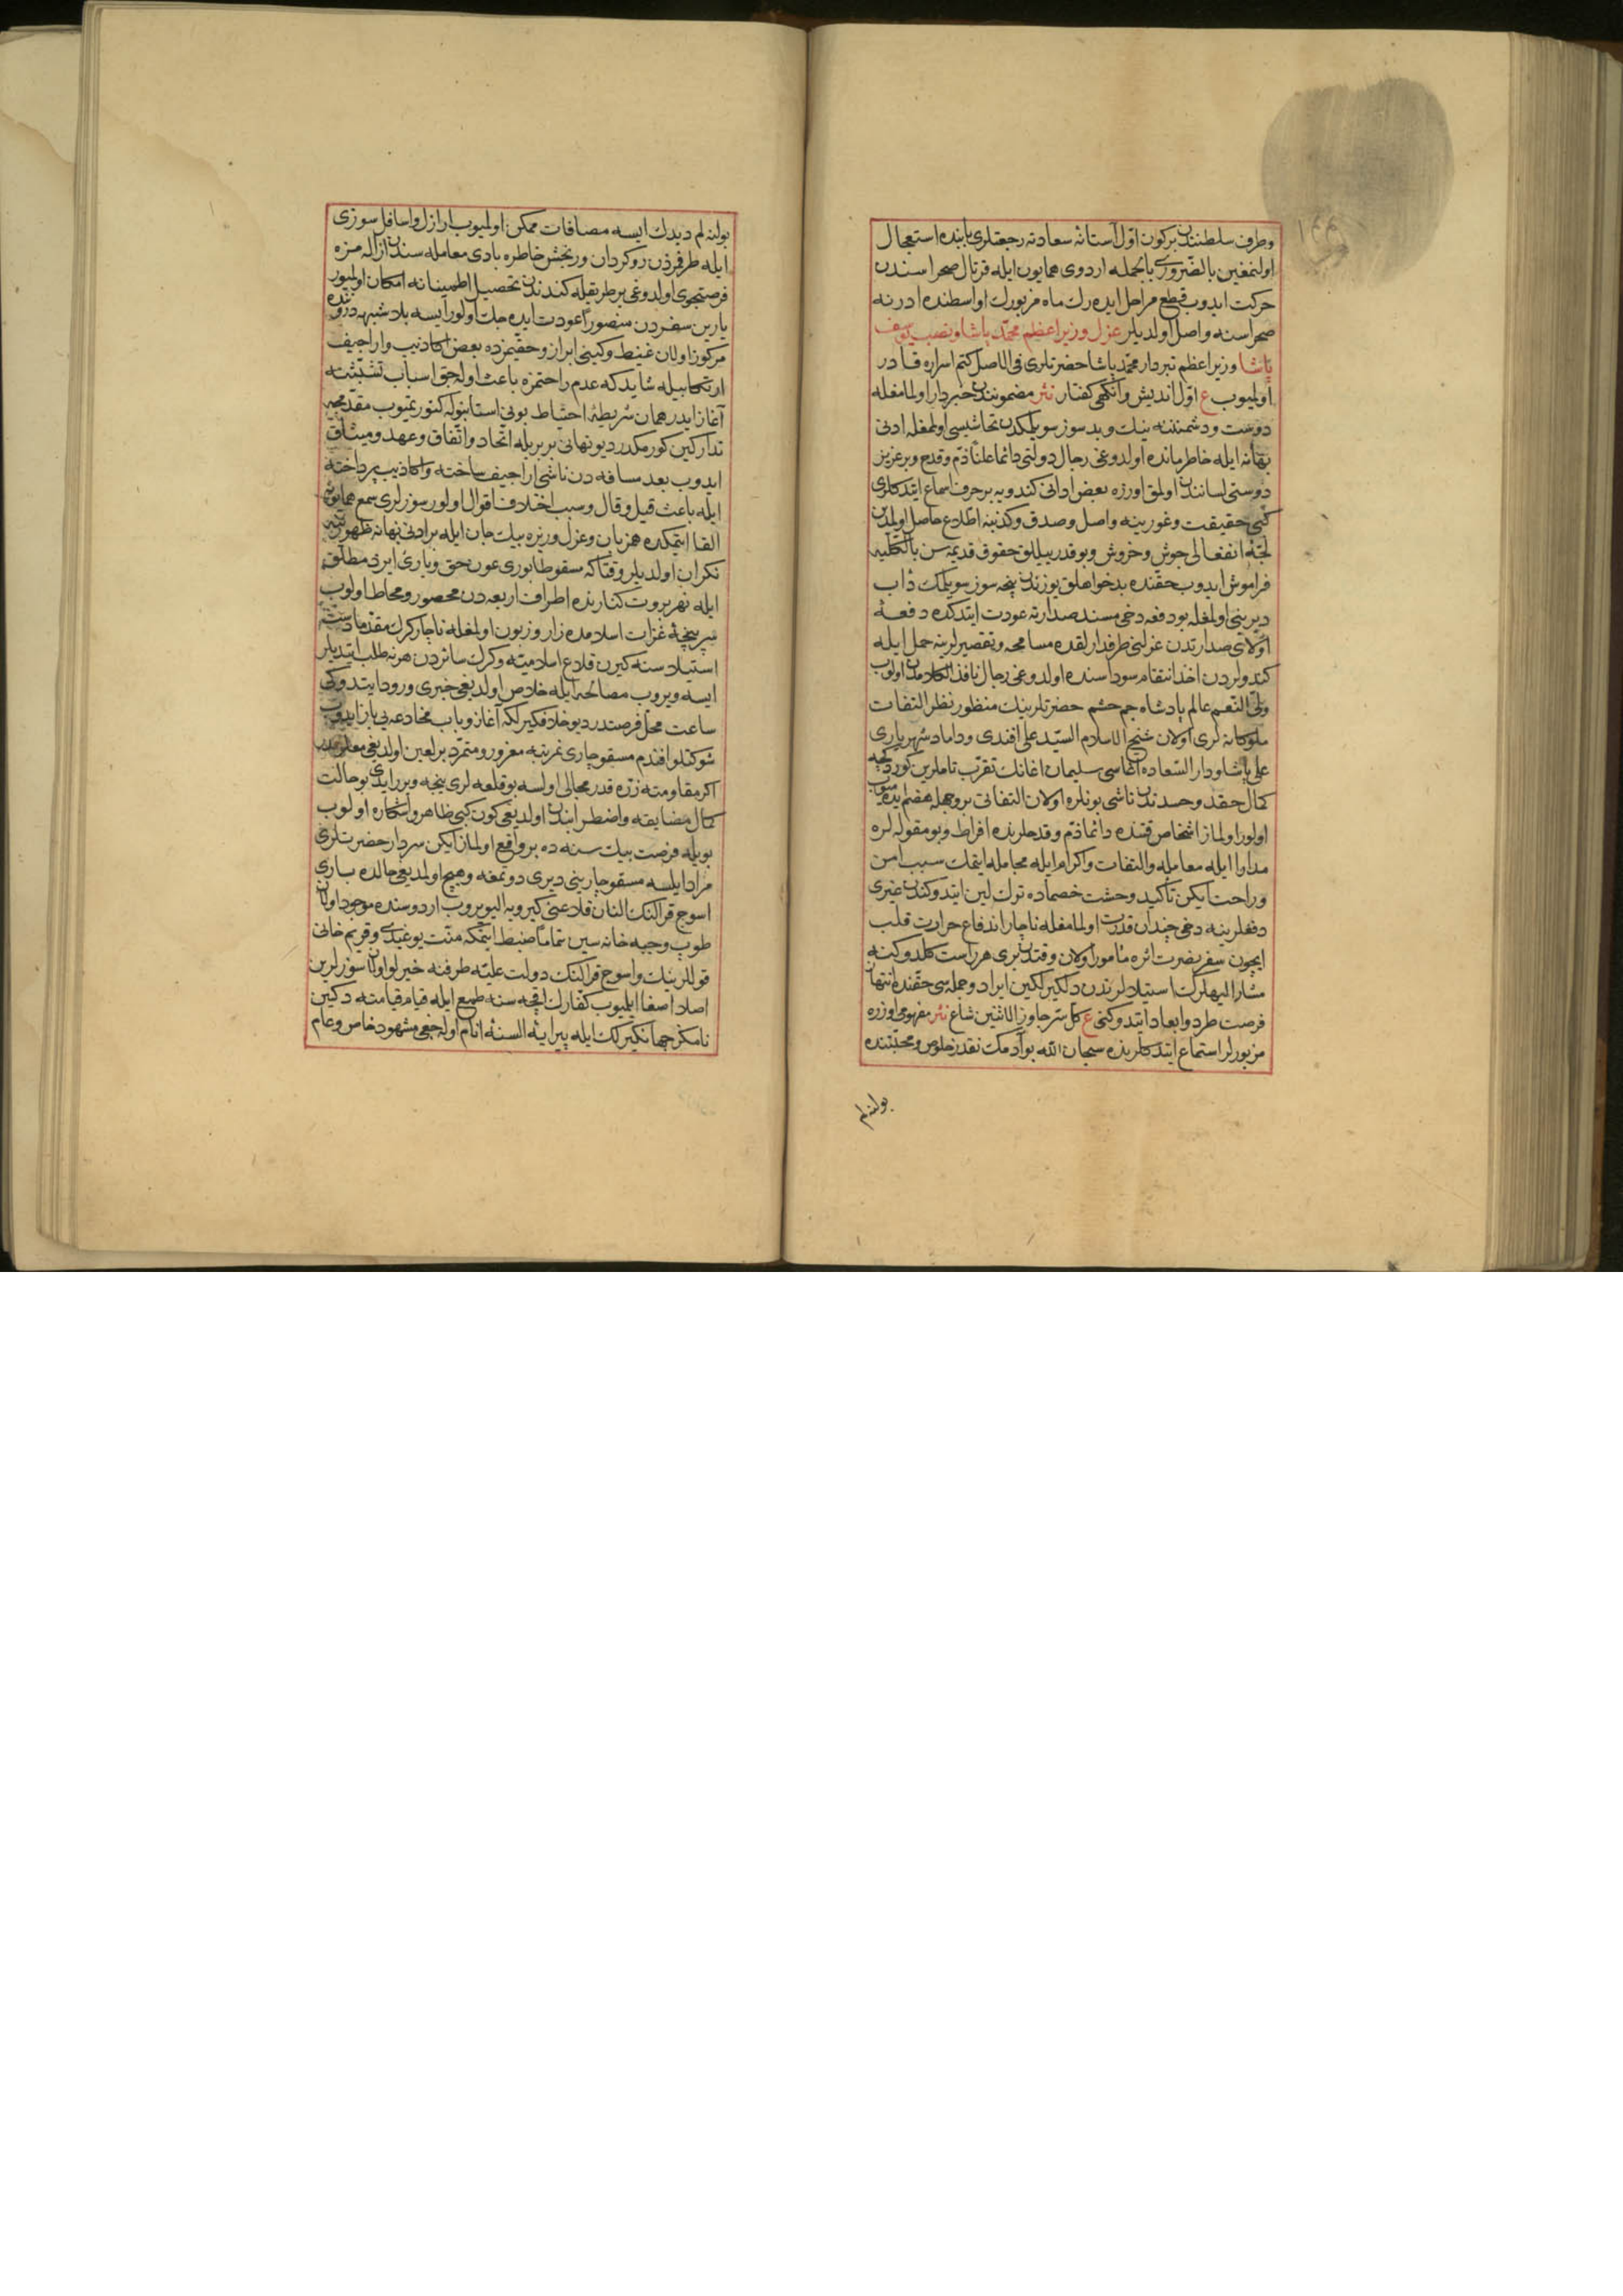 وطرف سلطنتدن بركون اول آستانهٔ سعادته رجعتلرى بابنده استعجال
اولنمغين بالضرورى بالجمله اردوى همايون ايله قرتال صحراسندن
حركت ايدوب قطع مراحل ايده رك ماه مزبورك اواسطنده ادرنه
صحراسنه واصل اولديلر عزل وزير اعظم محمد پاشا ونصب يوسف
پاشا وزير اعظم تبردار محمد پاشا حضرتلرى فى الاصل كتم اسراره قادر
اولميوب ع اول انديش وانكهى كفتار نثر مضمونندن خبردار اولمامغله
دوست ودشمننه نيك وبد سوز سويلمكدن تحاشيسى اولمغله ادنى
بهانه ايله خاطرمانده اولدوغى رجال دولتى دائما علنا ذم وقدح وبرعزيز
دوستى لسانندن اولمق اوزره بعض ادانى كندويه بر حرف اسماع ايتدكلرى
كبى حقيقت وغورينه واصل وصدق وكذبنه اطلاع حاصل اولمدين
لجهٔ انفعالى جوش وخروش وبوقدر ييللق حقوق قديمه سن بالكليه
فراموش ايدوب حقنده بدخواهلق يوزندن نيچه سوز سويلمك داب
ديرينى اولمغله بو دفعه دخى مسند صدارته عودت ايتدكده دفعهٔ
اولاى صدارتدن عزلنى طرفدارلقده مسامحه وتقصيرلرينه حمل ايله
كندولردن اخذ انتقام سوداسنده اولدوغى رجال نافذ الكلامدن اولوب
ولى النعم عالم پادشاه جم حشم حضرتلرينك منظور نظر التفات
ملوكانه لرى اولان شيخ الاسلام السيد على افندى وداماد شهريارى
على پاشا ودار السعاده اغاسى سليمان اغانك تقرب تاملرين كوردكجه
كمال حقد وحسدندن ناشى بونلره اولان التفاتى بروجهله هضم ايده ميوب
اولور اولماز اشخاص قتنده دائما ذم وقدحلرنده افراط وبو مقوله لره
مدارا ايله معامله والتفات واكرام ايله مجامله ايتمك سبب امن
وراحت ايكن تأكيد وحشت خصماده ترك لين ايتدوكندن غيرى
دفعلرينه دخى چندان قدرت اولمامغله ناچار اندفاع حرارت قلب
ايچون سفر نصرت اثره مأمور اولان وقتدن برى هر راست كلدوكنه
مشار اليهلرك استيلالرندن دلكير لكين ايراد وجمله سى حقنده انتهاز
فرصت طرد وابعاد ايتدوكنى ع كل سر جاوز الاثنين شاع نثر مفهومى اوزره
مزبورلر استماع ايتدكلرنده سبحان الله بو آدمك نقدر خلوص ومحبتنده
بولنه لم
بولنه لم ديدك ايسه مصافات ممكن اولميوب ارازل واسافل سوزى
ايله طرفمزدن روكردان ورنجش خاطره بادى معامله سندن ازاله مزه
فرصتجوى اولدوغى بر طريقله كندندن تحصيل اطمينانه امكان اولميور
يارين سفردن منصورا عودت ايده جك اولور ايسه بلا شبهه درونده
مركوز اولان غيظ وكينى ابراز وحقيمزده بعض اكاذيب واراجيف
ارتكابيله شايد كه عدم راحتمزه باعث اوله جق اسباب تشبثنه
آغاز ايدر همان شريطهٔ احتياط بونى استانبوله كتورتميوب مقدمجه
تداركين كورمكدر ديو نهانى بربريله اتحاد واتفاق وعهد وميثاق
ايدوب بعد مسافه دن ناشى اراجيف ساخته واكاذيب پرداخته
ايله باعث قيل وقال وسبب اختلاف اقوال اولور سوزلرى سمع همايونه
القا ايتمكده همزبان وعزل وزيره بيك جان ايله بر ادنى بهانه ظهورينه
نكران اولديلر وقتاكه سقوط طابورى عون حق ويارئ ايزد مطلق
ايله نهر بروت كنارنده اطراف اربعه دن محصور ومحاط اولوب
سرپنچهٔ غزات اسلامده زار وزبون اولمغله ناچار كرك مقدما دست
استيلاسنه كيرن قلاع اسلاميه وكرك سائردن هر نه طلب ايتديلر
ايسه ويروب مصالحه ايله خلاص اولديغى خبرى ورود ايتدوكى
ساعت محل فرصتدر ديو خلافكيرلكه آغاز وباب مخادعه يى باز ايدوب
شوكتلو افندم مسقو چارى نمرتبه مغرور ومتمرد بر لعين اولديغى معلومدر
اكر مقاومته زره قدر مجالى اولسه بو قلعه لرى نيجه ويرر ايدى بو حالت
كمال مضايقه واضطرابندن اولديغى كون كبى ظاهر واشكاره اولوب
بويله فرصت بيك سنه ده بر واقع اولماز ايكن سردار حضرتلرى
مراد ايلسه مسقو چارينى ديرى دوتمغه وهيچ اولمديغى حالده بارى
اسوج قرالنك النان قلاعنى كيرويه اليويروب اردوسنده موجود اولان
طوپ وجبه خانه سين تماما ضبط ايتمكه منت يوغيدى وقريم خانى
قوللرينك واسوج قرالنك دولت عليه طرفنه خيرلو اولان سوزلرين
اصلا اصغا ايلميوب كفارك اقچه سنه طمع ايله قيام قيامته دكين
نامكز جهانكيرلك ايله پيرايهٔ السنهٔ انام اوله جغى مشهود خاص وعام